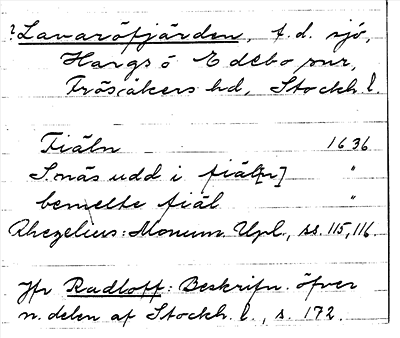 ? Lavaröfjärden, f.d. sjö,
Hargs o Edebo snr,
Frösåkers hd, Stockh. l.
Fiäln 1636
S. näs udd i fiäl[n] "
bemelte fiäl "
Rhezelius: Monum. Upl., ss. 115, 116.
Jfr Radloff: Beskrifn. öfver
n. delen af Stockh. l., s. 172.